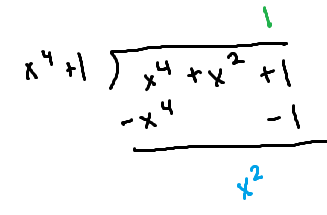 1
x⁴+1 ) x⁴ + x² + 1
-x⁴ - 1
x²